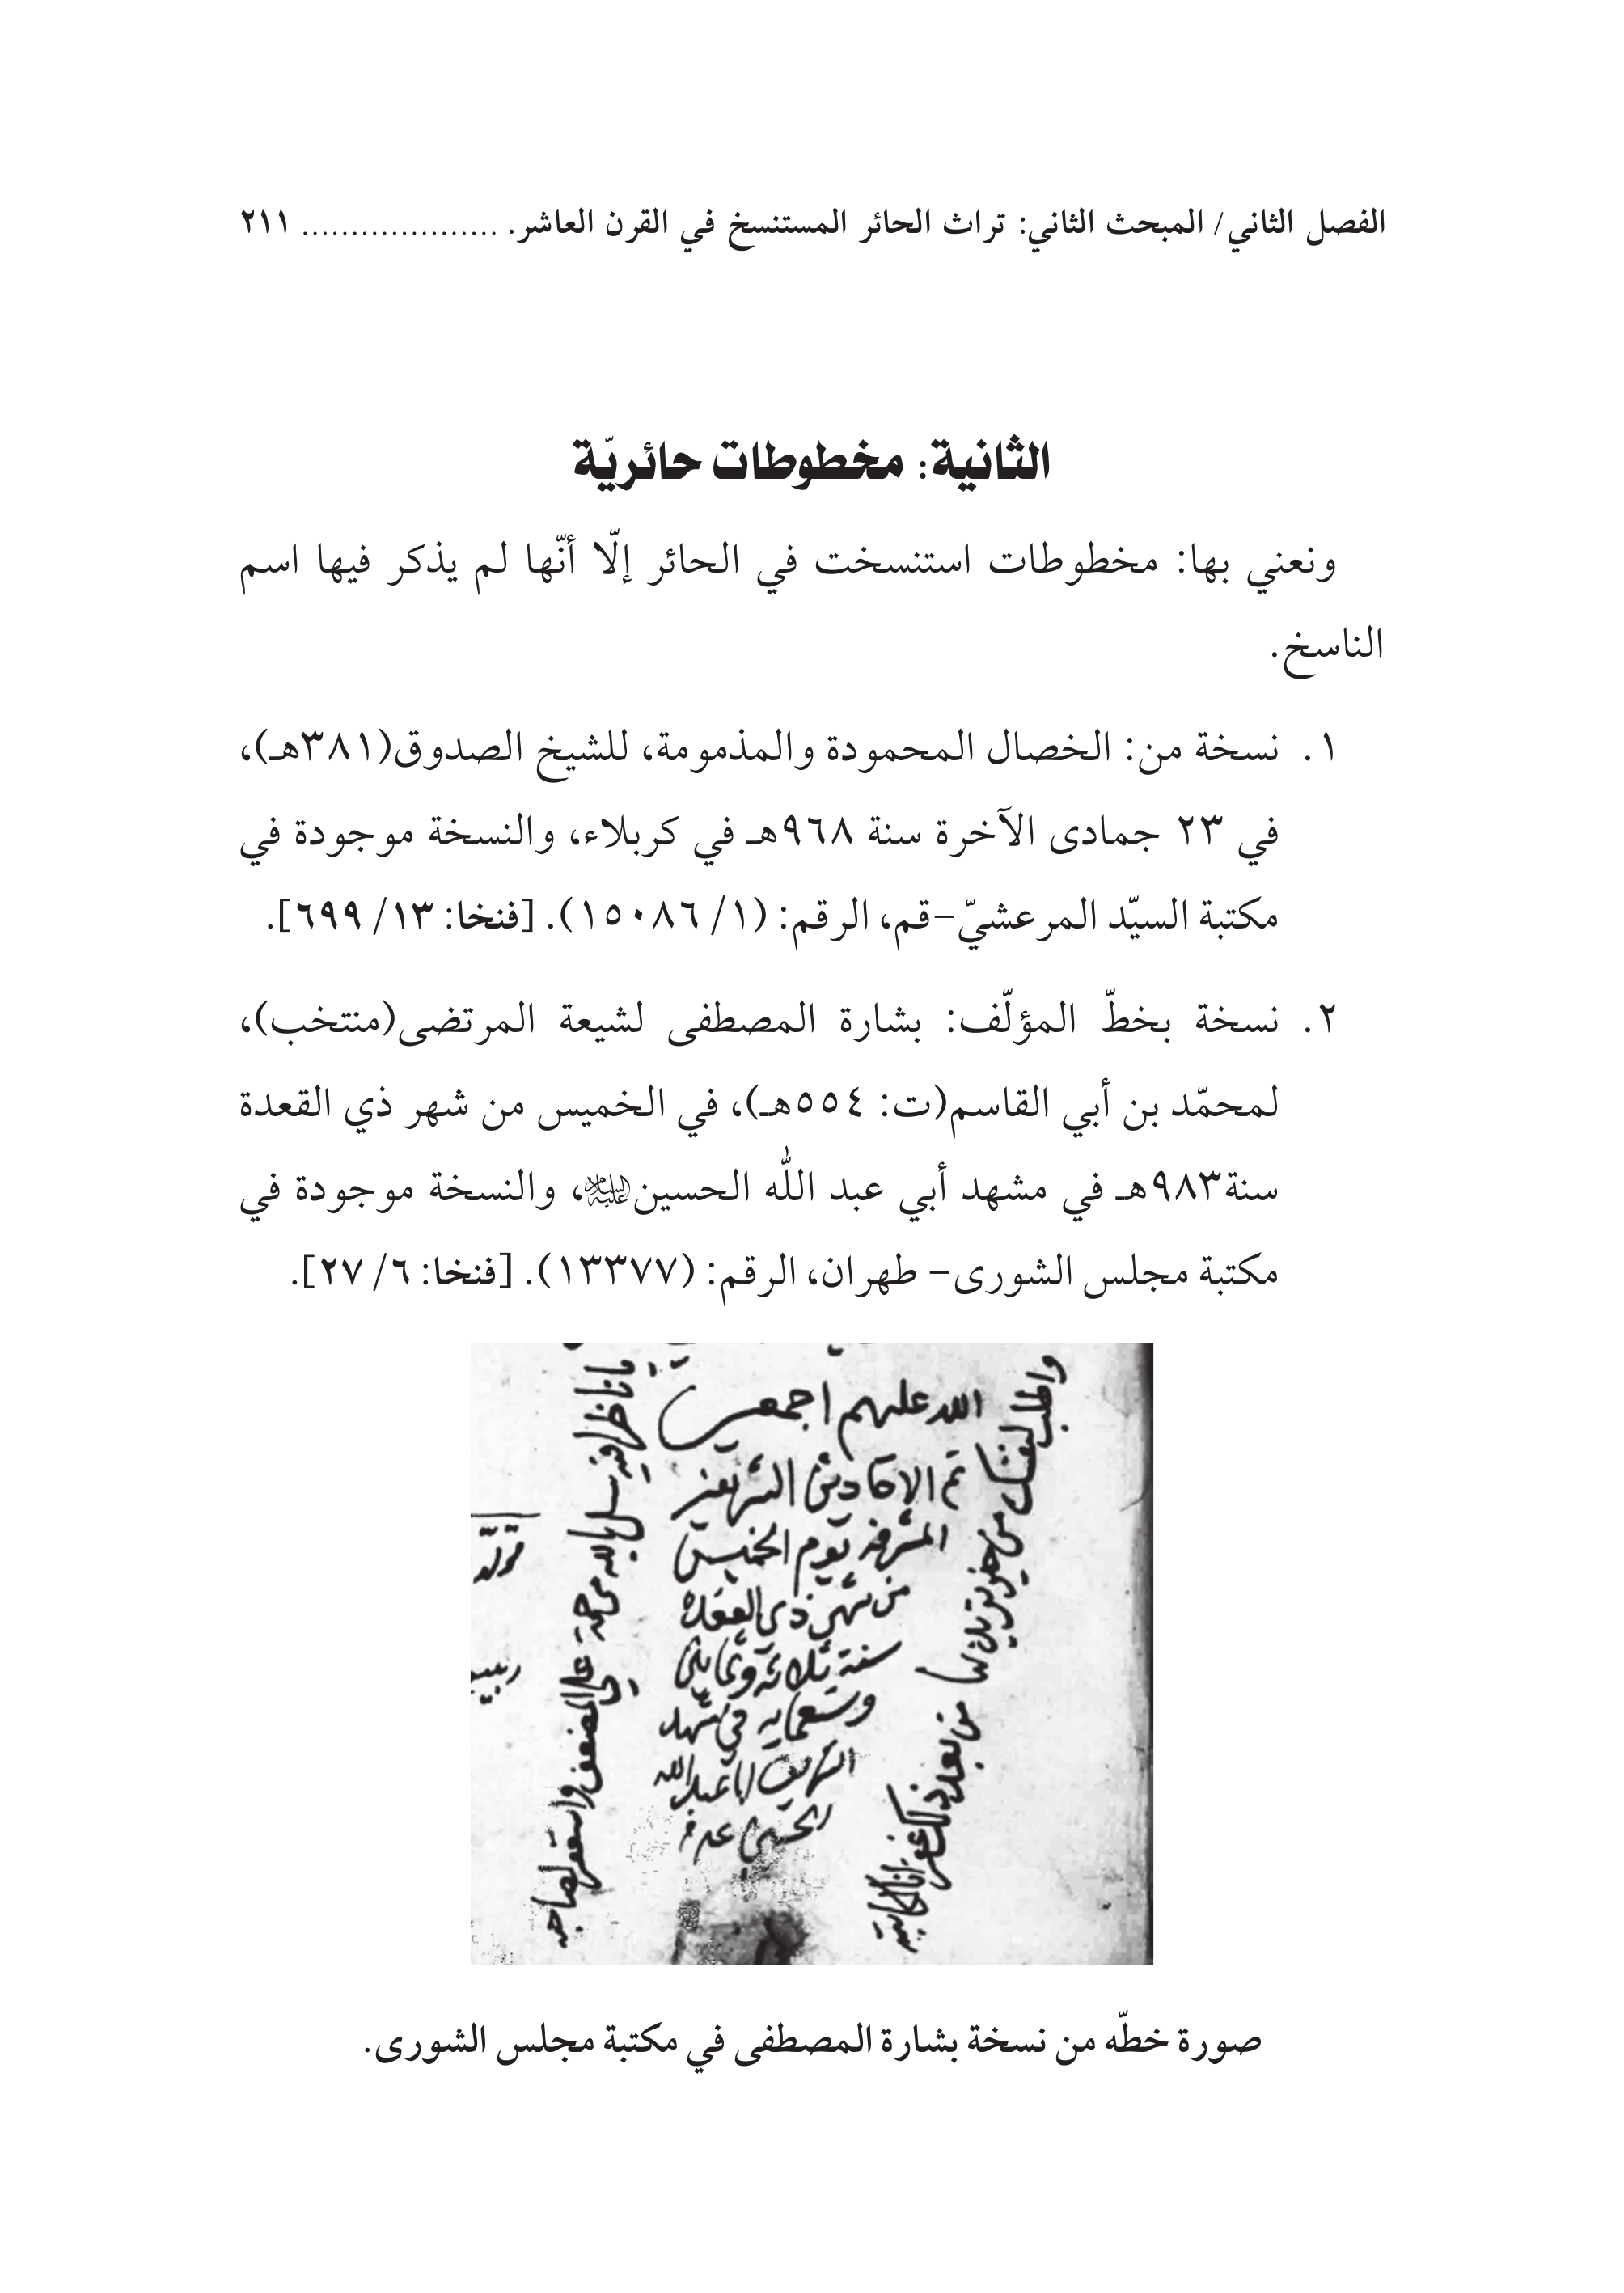 الفصل الثاني/ المبحث الثاني: تراث الحائر المستنسخ في القرن العاشر. .................... ٢١١
الثانية: مخطوطات حائريّة
ونعني بها: مخطوطات استنسخت في الحائر إلّا أنّها لم يذكر فيها اسم
الناسخ.
١. نسخة من: الخصال المحمودة والمذمومة، للشيخ الصدوق(٣٨١هـ)،
في ٢٣ جمادى الآخرة سنة ٩٦٨هـ في كربلاء، والنسخة موجودة في
مكتبة السيّد المرعشيّ-قم، الرقم: (١/ ١٥٠٨٦). [فنخا: ١٣/ ٦٩٩].
٢. نسخة بخطّ المؤلّف: بشارة المصطفى لشيعة المرتضى(منتخب)،
لمحمّد بن أبي القاسم(ت: ٥٥٤هـ)، في الخميس من شهر ذي القعدة
سنة٩٨٣هـ في مشهد أبي عبد الله الحسين عليه السلام، والنسخة موجودة في
مكتبة مجلس الشورى- طهران، الرقم: (١٣٣٧٧). [فنخا: ٦/ ٢٧].
الله عليهم اجمعين
تم الاحاديث الشريفة
المشرفة يوم الخميس
من شهر ذي القعدة
سنة ثلاثة وثمانين
وتسعمايه في مشهد
الشريف ابا عبد الله
الحسين
يا ناظرا فيه سل بالله مرحمة على المصنف واستغفر لصاحبه
واطلب لنفسك من خير تريد بها من بعد ذلك غفرانا لكاتبه
صورة خطّه من نسخة بشارة المصطفى في مكتبة مجلس الشورى.